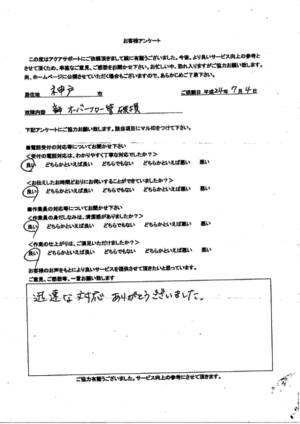 お客様アンケート
この度はアクアサポートにご依頼頂きまして誠に有難うございました。今後、より良いサービス向上の参考と
させて頂くため、率直なご意見、ご感想をお聞かせ下さい。お忙しい中、恐れ入りますがご協力お願い致します。
尚、ホームページに公開させていただく場合もございますので、あらかじめご了承下さい。
居住地 神戸 ご依頼日 平成24年7月4日
オーバーフロー管 破損
下記アンケートにご協力お願い致します。該当項目にマル印をつけて下さい。
■電話受付の対応等についてお聞かせ下さい
<受付の電話対応は、わかりやすく丁寧な対応でしたか?>
良い どちらかといえば良い どちらでもない どちらかといえば悪い 悪い
<お伝えしたお時間どおりにお伺いすることができていましたか?>
良い どちらかといえば良い どちらでもない どちらかといえば悪い 悪い
■作業員の対応等についてお聞かせ下さい
<作業員の身だしなみは、清潔感がありましたか?>
良い どちらかといえば良い どちらでもない どちらかといえば悪い 悪い
<作業の仕上がりは、ご満足いただけましたか?>
良い どちらかといえば良い どちらでもない どちらかといえば悪い 悪い
お客様のお声をもとにより良いサービスを提供させて頂きたいと思っています。
ご意見、ご感想等、一言お願い致します
迅速な対応 ありがとうございました。
ご協力有難うございました。サービス向上の参考にさせて頂きます。